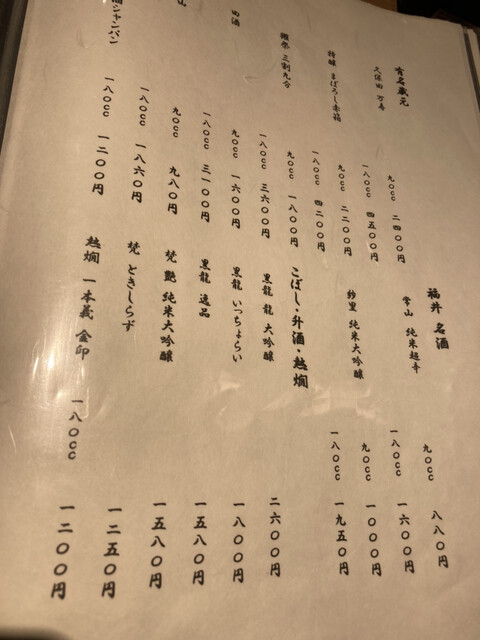 有名蔵元
久保田 万寿
九〇cc 二四〇〇円
一八〇cc 四五〇〇円
特醸 まぼろし赤箱
九〇cc 二二〇〇円
一八〇cc 四二〇〇円
獺祭 三割九分
九〇cc 一八〇〇円
一八〇cc 三六〇〇円
田酒
九〇cc 一六〇〇円
一八〇cc 三一〇〇円
山
九〇cc 九八〇円
一八〇cc 一八六〇円
酒シャンパン
一八〇cc 一二〇〇円
福井 名酒
常山 純米超辛
九〇cc 八八〇円
一八〇cc 一六〇〇円
紗里 純米大吟醸
九〇cc 一〇〇〇円
一八〇cc 一九五〇円
こぼし・升酒・熱燗
黒龍 龍 大吟醸 二六〇〇円
黒龍 いっちょらい 一八〇〇円
黒龍 逸品 一五八〇円
梵 艶 純米大吟醸 一五八〇円
梵 ときしらず 一二五〇円
熱燗 一本義 金印 一八〇cc 一二〇〇円